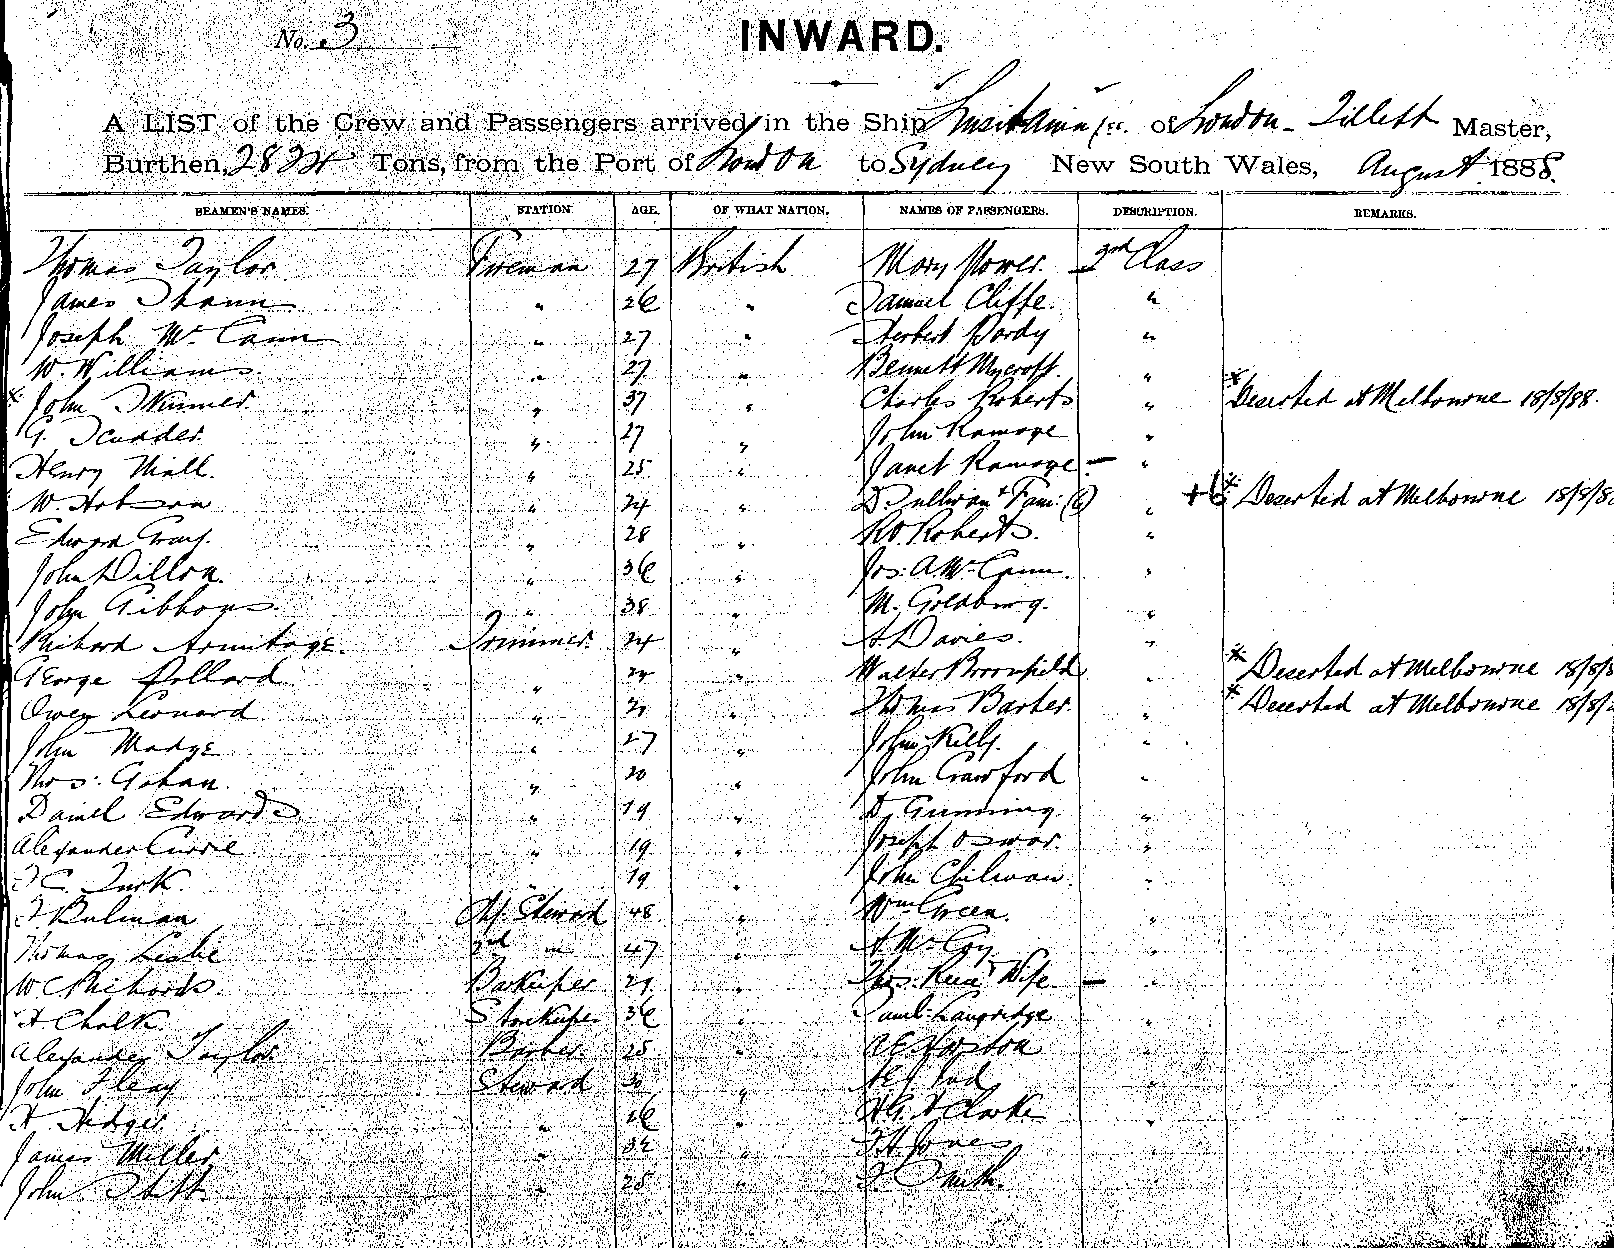 No. 3
INWARD.
A LIST of the Crew and Passengers arrived in the Ship Lusitania s.s. of London - Tillett Master,
Burthen, 2824 Tons, from the Port of London to Sydney New South Wales, August 1888.
SEAMEN'S NAMES. STATION. AGE. OF WHAT NATION. NAMES OF PASSENGERS. DESCRIPTION. REMARKS.
Thomas Taylor Fireman 27 British Mary Power. 2nd Class
James Shann " 26 " Samuel Cliffe. "
Joseph McCann " 27 " Herbert Pordy "
W. Williams " 27 " Bennett Mycroft. "
* John Skinner " 37 " Charles Roberts " * Deserted at Melbourne 18/8/88.
G. Scudder " 27 " John Ramage "
Henry Niall " 25 " Janet Ramage - "
W. Hobson " 24 " D. Sullivan & Fam: (6) " +6 * Deserted at Melbourne 18/8/8
Edward Gray. " 28 " Roberts. "
John Dillon. " 36 " Jos: A McCann. "
John Gibbons " 38 " M. Goldburg. "
Richard Armitage. Trimmer. 24 " Davies. "
George Pollard " 24 " Walter Broomfield " * Deserted at Melbourne 18/8/8
Owen Leonard " " Thomas Barber. " * Deserted at Melbourne 18/8/
John Madge " 27 " John Kelly. "
Thos. Gahan. " 20 " John Crawford "
Daniel Edwards " 19 " D. Gunning. "
Alexander Currie " 19 " Joseph "
Turk. " 19 " John Chilman. "
Bulman Steward 48 " Wm Green. "
Thomas Leslie 2nd " 47 " McCoy "
W C Richards. Barkeeper " Thos. & Wife - "
H Chalk. Storekeeper 36 " Saml. Langridge "
Alexander Taylor Barber. 25 " "
John Fleay Steward 30 " "
H. Hedges " 26 " Clarke "
James Miller " 32 " Jones "
John " 25 " Smith. "